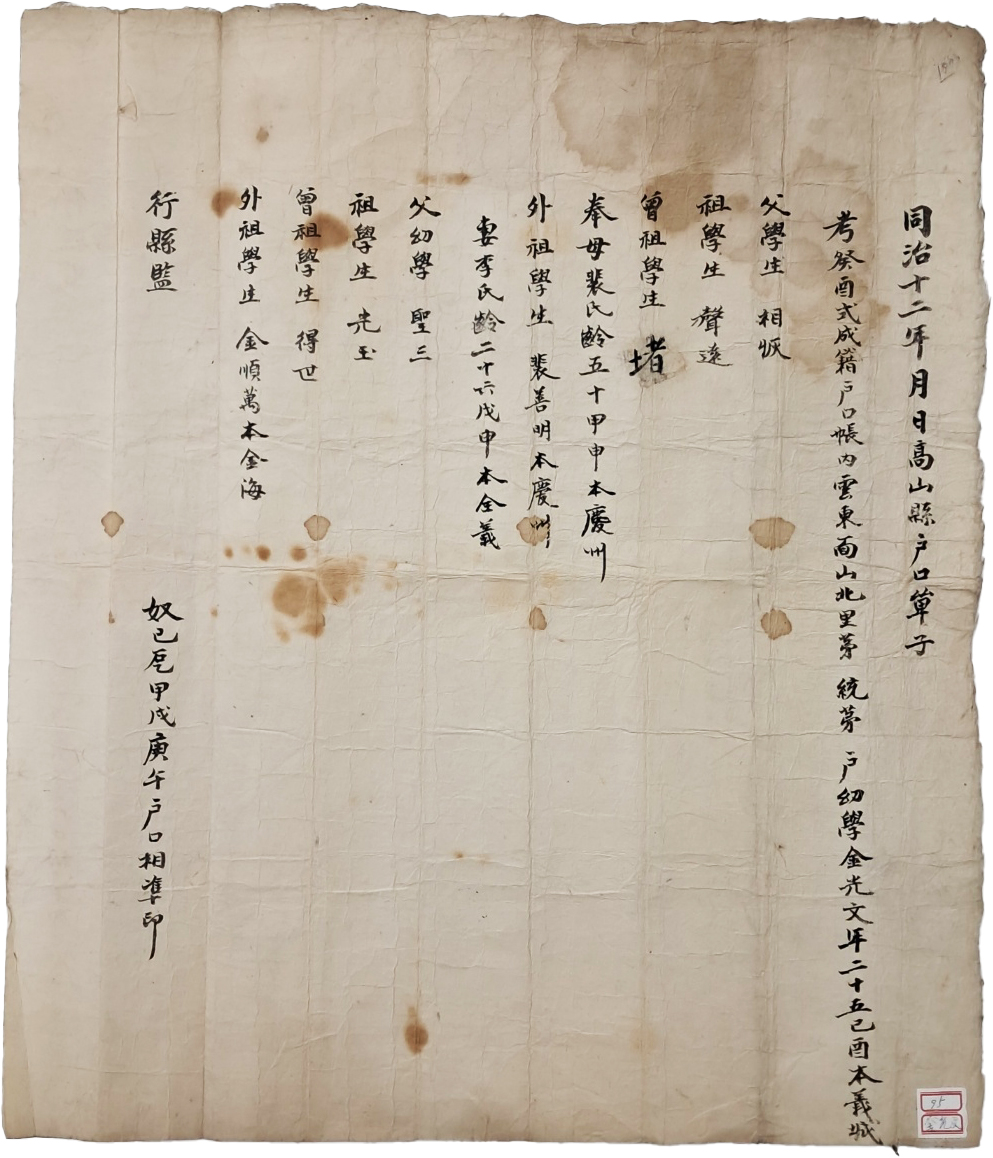 同治十二年 月 日高山縣戶口單子
考癸酉式成籍戶口帳內雲東面山北里苐 統苐 戶幼學金光文年二十五己酉本義城
父學生 相
祖學生 聲遠
曾祖學生 堵
奉母裴氏齡五十甲申本慶州
外祖學生 裴善明本慶州
妻李氏齡二十六戊申本全義
父幼學 聖三
祖學生 光玉
曾祖學生 得世
外祖學生 金順萬本金海
行縣監
奴已 甲戌庚午戶口相准印
95
金光文